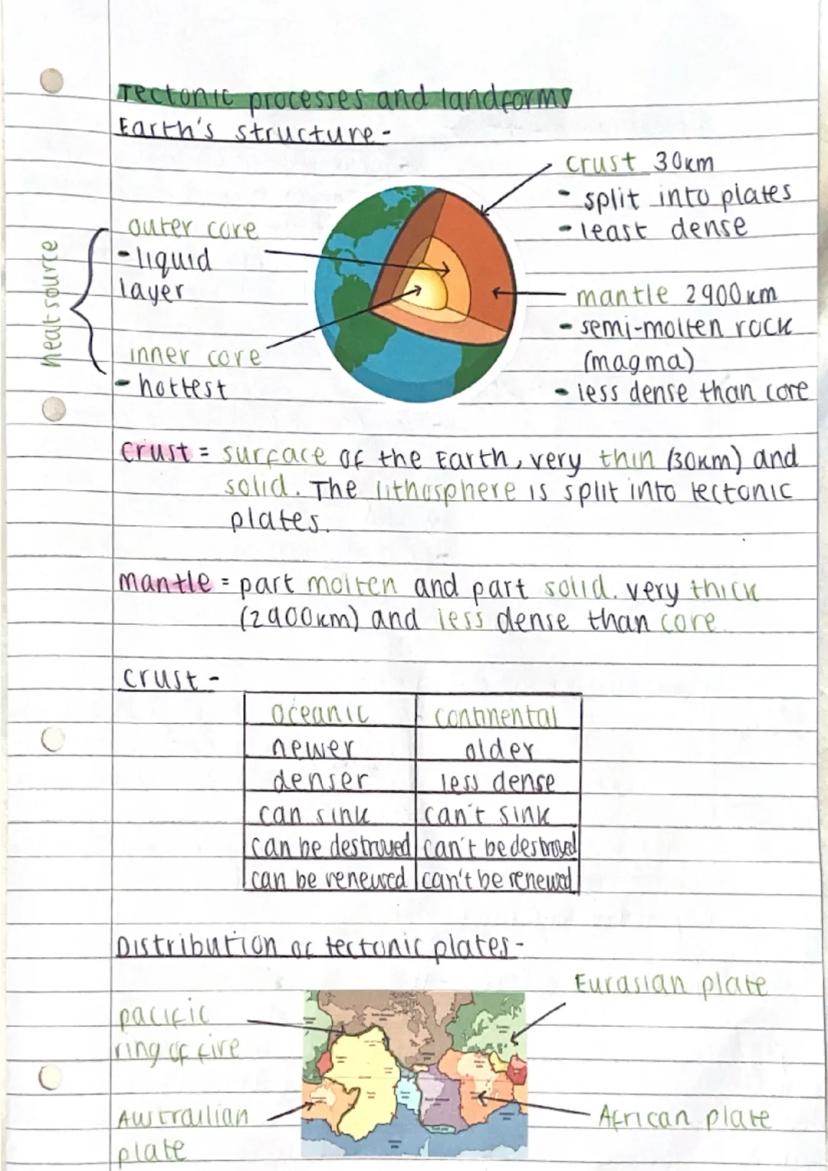 Tectonic processes and landforms
Earth's structure-
crust 30km
- split into plates
- least dense
outer core
- liquid
layer
heat source
mantle 2900km
- semi-molten rock
(magma)
- less dense than core
inner core
- hottest
crust = surface of the Earth, very thin (30km) and
solid. The lithosphere is split into tectonic
plates.
mantle = part molten and part solid. very thick
(2900km) and less dense than core
crust -
oceanic continental
newer older
denser less dense
can sink can't sink
can be destroyed can't be destroyed
can be renewed can't be renewed
Distribution of tectonic plates-
Eurasian plate
pacific
ring of fire
Austrailian
plate
African plate